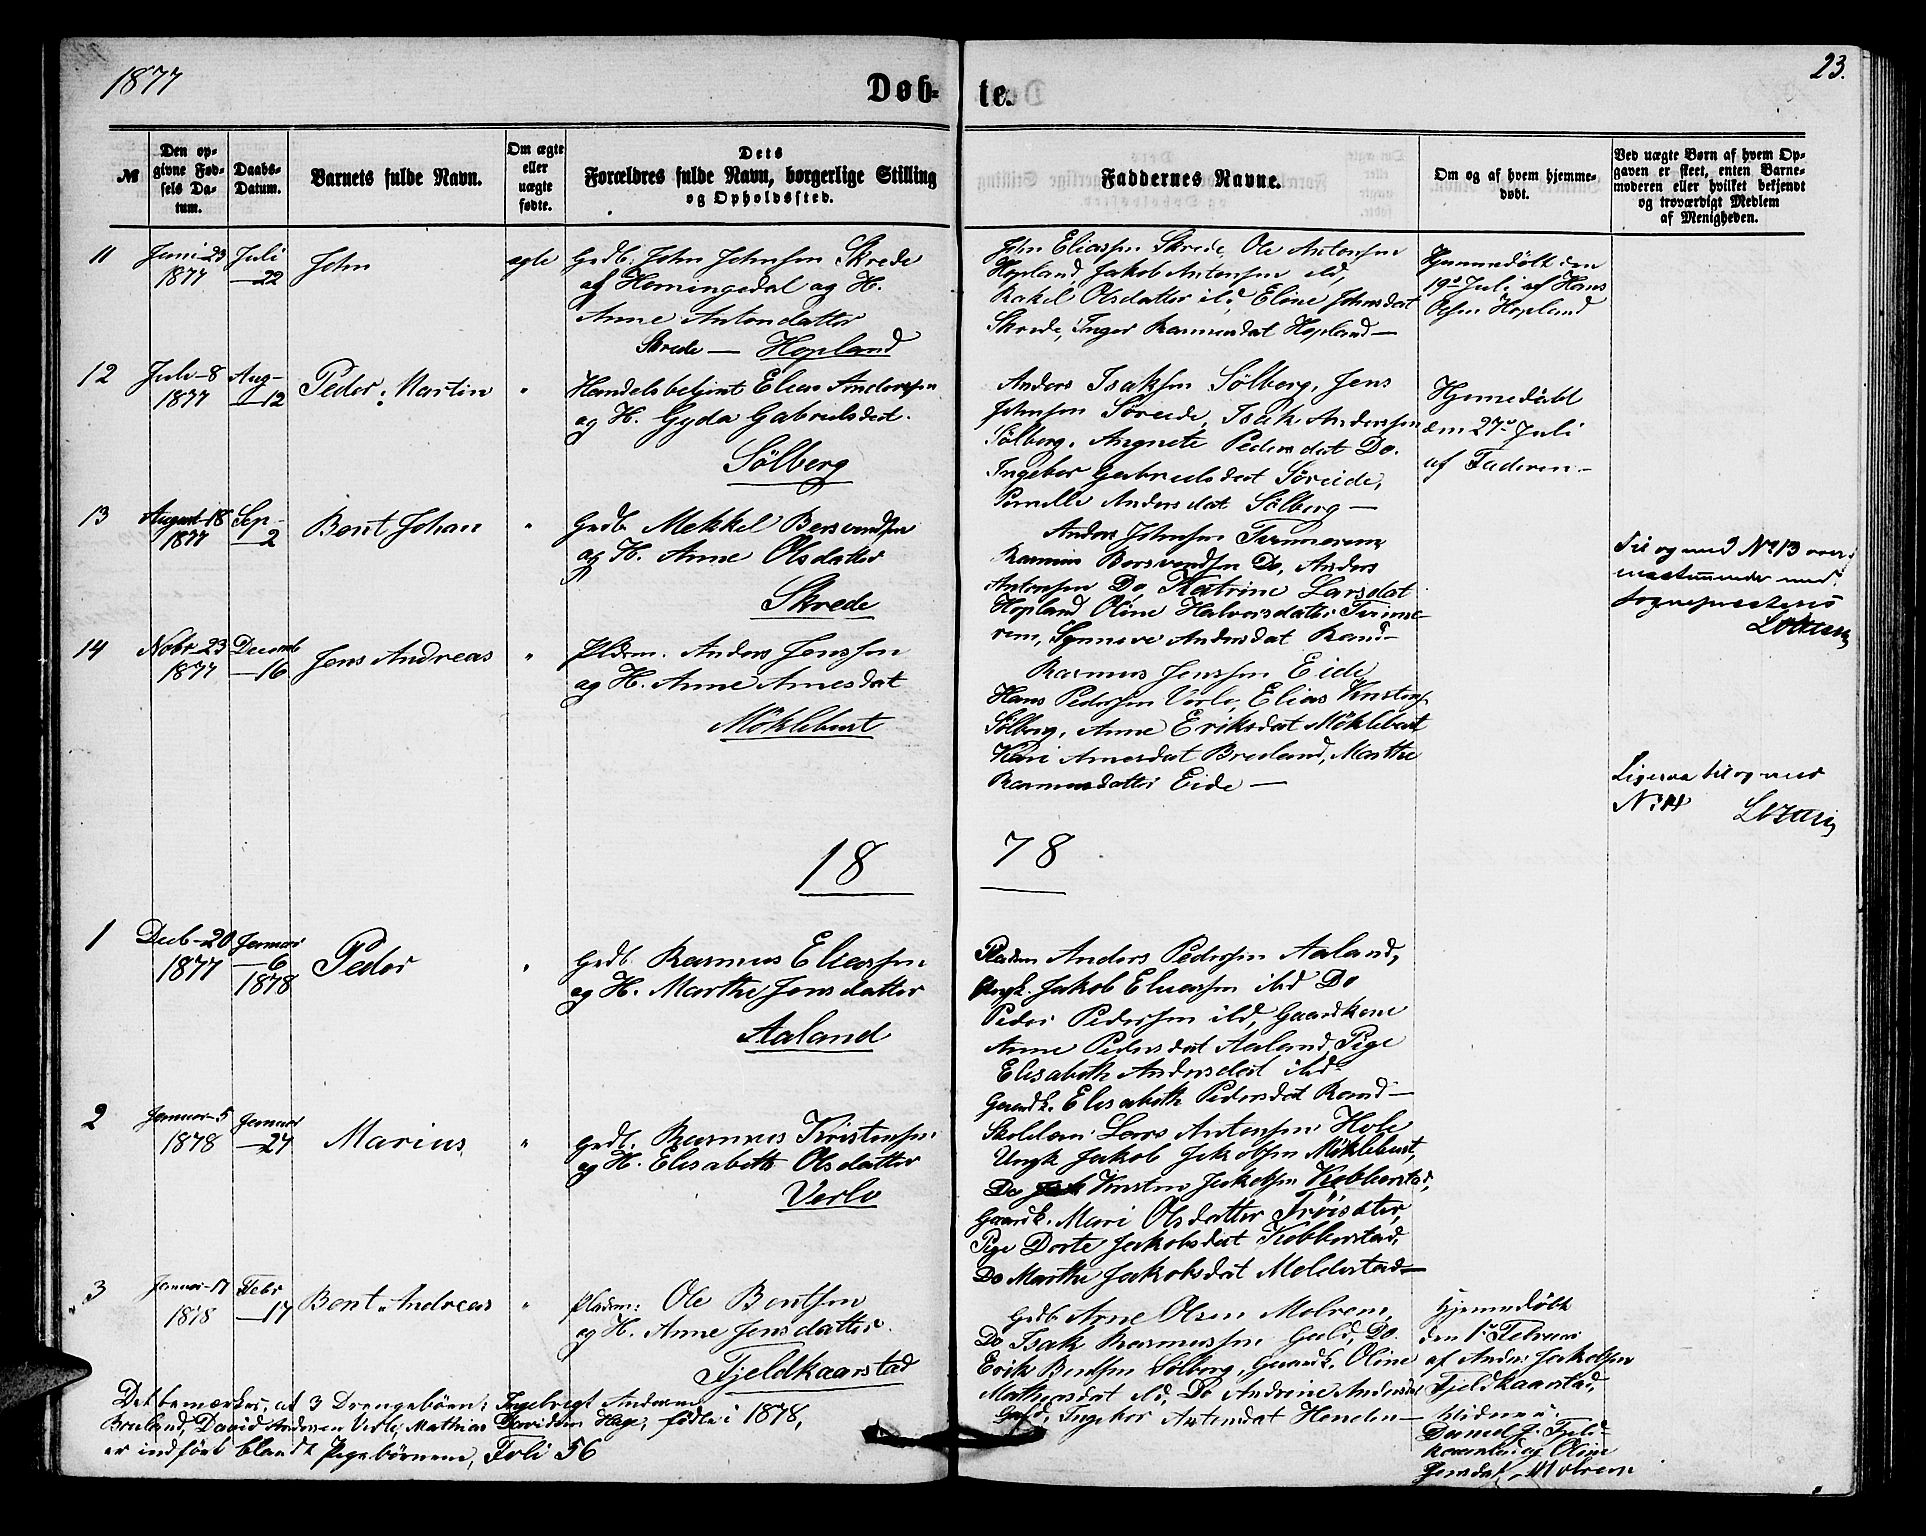 1877
Døb-
te.
23.
№
Den op-
givne Fød-
sels Da-
tum.
Daabs-
Datum.
Barnets fulde Navn.
Om ægte
eller
uægte
fødte.
Dets
Forældres fulde Navn, borgerlige Stilling
og Opholdssted.
Faddernes Navne.
Om og af hvem hjemme-
døbt.
Ved uægte Børn af hvem Op-
gaven er skeet, enten Barne-
moderen eller hvilket bekjendt
og troværdigt Medlem
af Menigheden.
11
Juni 23
1877
Juli
—22
John
ægte
Grdb. John Johnsen Skrede
af Horningdal og H.
Anne Antondatter
Skrede — Hopland
John Eliassen Skrede, Ole Antonsen
Hopland, Jakob Antonsen ibd,
Rakel Olsdatter ibd Eline Johnsdat
Skrede, Inger Rasmusdat Hopland—
Hjemmedøbt den
19de Juli af Hans
Olsen Hopland
12
Juli-8
1877
Aug-
—12
Peder Martin
"
Handelsbetjent Elias Anderssen
og H. Gyda Gabrielsdat.
Sölberg
Anders Isaksen Sölberg, Jens
Johnsen Söreide, Isak Anderssen
Sölberg, Angnete Pedersdat Do.
Ingebor Gabrielsdat Söreide,
Pernille Andersdat Sölberg—
Hjemedöbt
den 27de Juli
af Faderen—
13
August-18
1877
Sep-
—2
Bent Johan
"
Grdb. Mekkel Bersvendsen
og H. Anne Olsdatter
Skrede
Anders Johnsen Tvinnerem
Rasmus Bersvendsen Do, Anders
Antonsen Do, Katrine Larsdat
Hopland Oline Halvorsdatter Tvinne-
rem, Synneve Andersdat Rand—
Til og med No 13 over-
ensstemmende med
Sognepræstens
14
Nobr-23
1877
Decemb
—16
Jens Andreas
"
Pldsm. Anders Jenssen
og H. Anne Arnesdat
Möklebust
Rasmus Jenssen Eide
Hans Pederssen Verlo, Elias Kristens.
Sölberg, Anne Eriksdat Möklebust
Kari Arnesdat Breiland, Marthe
Rasmusdatter Eide—
Ligesaa til og med
No 14
18
78
1
Decb-20
1877
Januari
—6
1878
Peder
"
Grdb. Rasmus Eliassen
og H. Marthe Jensdatter
Aaland
Pladsm Anders Pedersen Aaland,
Ungk. Jakob Eliassen ibd Do
Peder Pedersen ibd, Gaardkone
Anne Pedersdat Aaland Pige
Elisabeth Andersdat ibd
Gaardk. Elisabeth Pedersdat Rand—
2
Januar-5
1878
Januari
—27
Marius
"
Grdb. Rasmus Kristensen
og H. Elisabeth Olsdatter
Verlo
Skolelær. Lars Antonsen Hole
Ungk Jakob Jakobsen Möklebust,
Do Kristen Jakobsen Kobberstad,
Gaardk. Mari Olsdatter Tröisæter,
Pige Dorte Jakobsdat Kobberstad,
Do Marthe Jakobsdat Meldestad—
3
Januar-17
1878
Febr
—17
Bent Andreas
"
Pladsm: Ole Bentsen
og H. Anne Jensdatter.
Fjeldkaarstad
Grdb Arne Olsen Molrem,
Do Isak Rasmussen Guld, Do
Erik Bentsen Sölberg, Gaardk. Oline
Mathiasdat ibd, Do Andrine Andersdat
Guld, Ingebor Antondat Henden—
Hjemmedöbt
den 1ste Februar
af Anders Jakobsen
Fjeldkaarstad,
Vidner:
Daniel J. Fjeld-
kaarstad og Oline
Jensdat Molrem
Det bemærkes, at 3 Drengebörn: Ingebrigt Andersen
Breiland, David Andersen Verlo, Mathias Davidsen Hage, födte i 1878,
er indfört blandt Pigebörnene, Foli 56